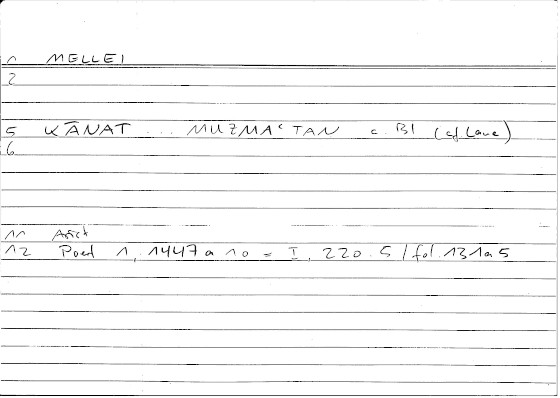 1 MELLEI
2
5 KĀNAT ... MUZMAʿTAN c. BI (cf Lane)
6
11 Arist
12 Poet 1, 1447 a 10 = I, 220.5 / fol. 131a5